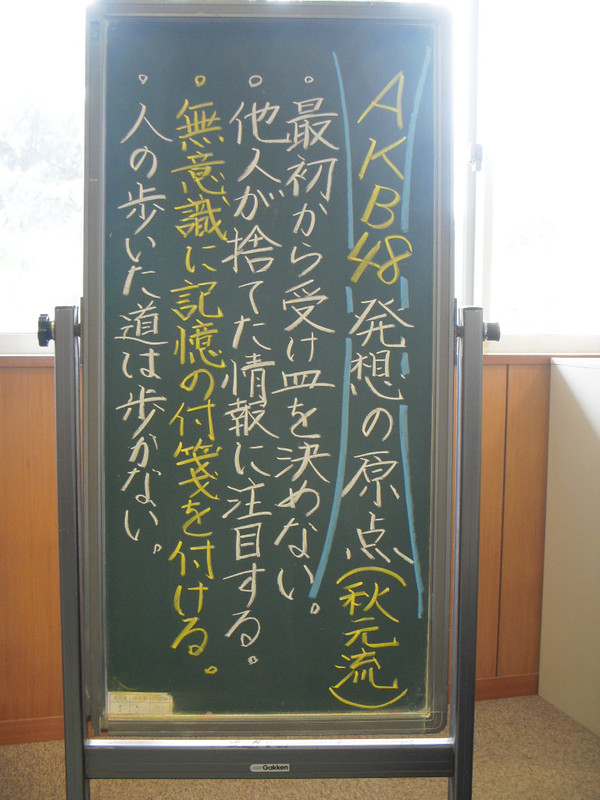 AKB48発想の原点(秋元流)
・最初から受け皿を決めない。
・他人が捨てた情報に注目する。
・無意識に記憶の付箋を付ける。
・人の歩いた道は歩かない。
Gakken